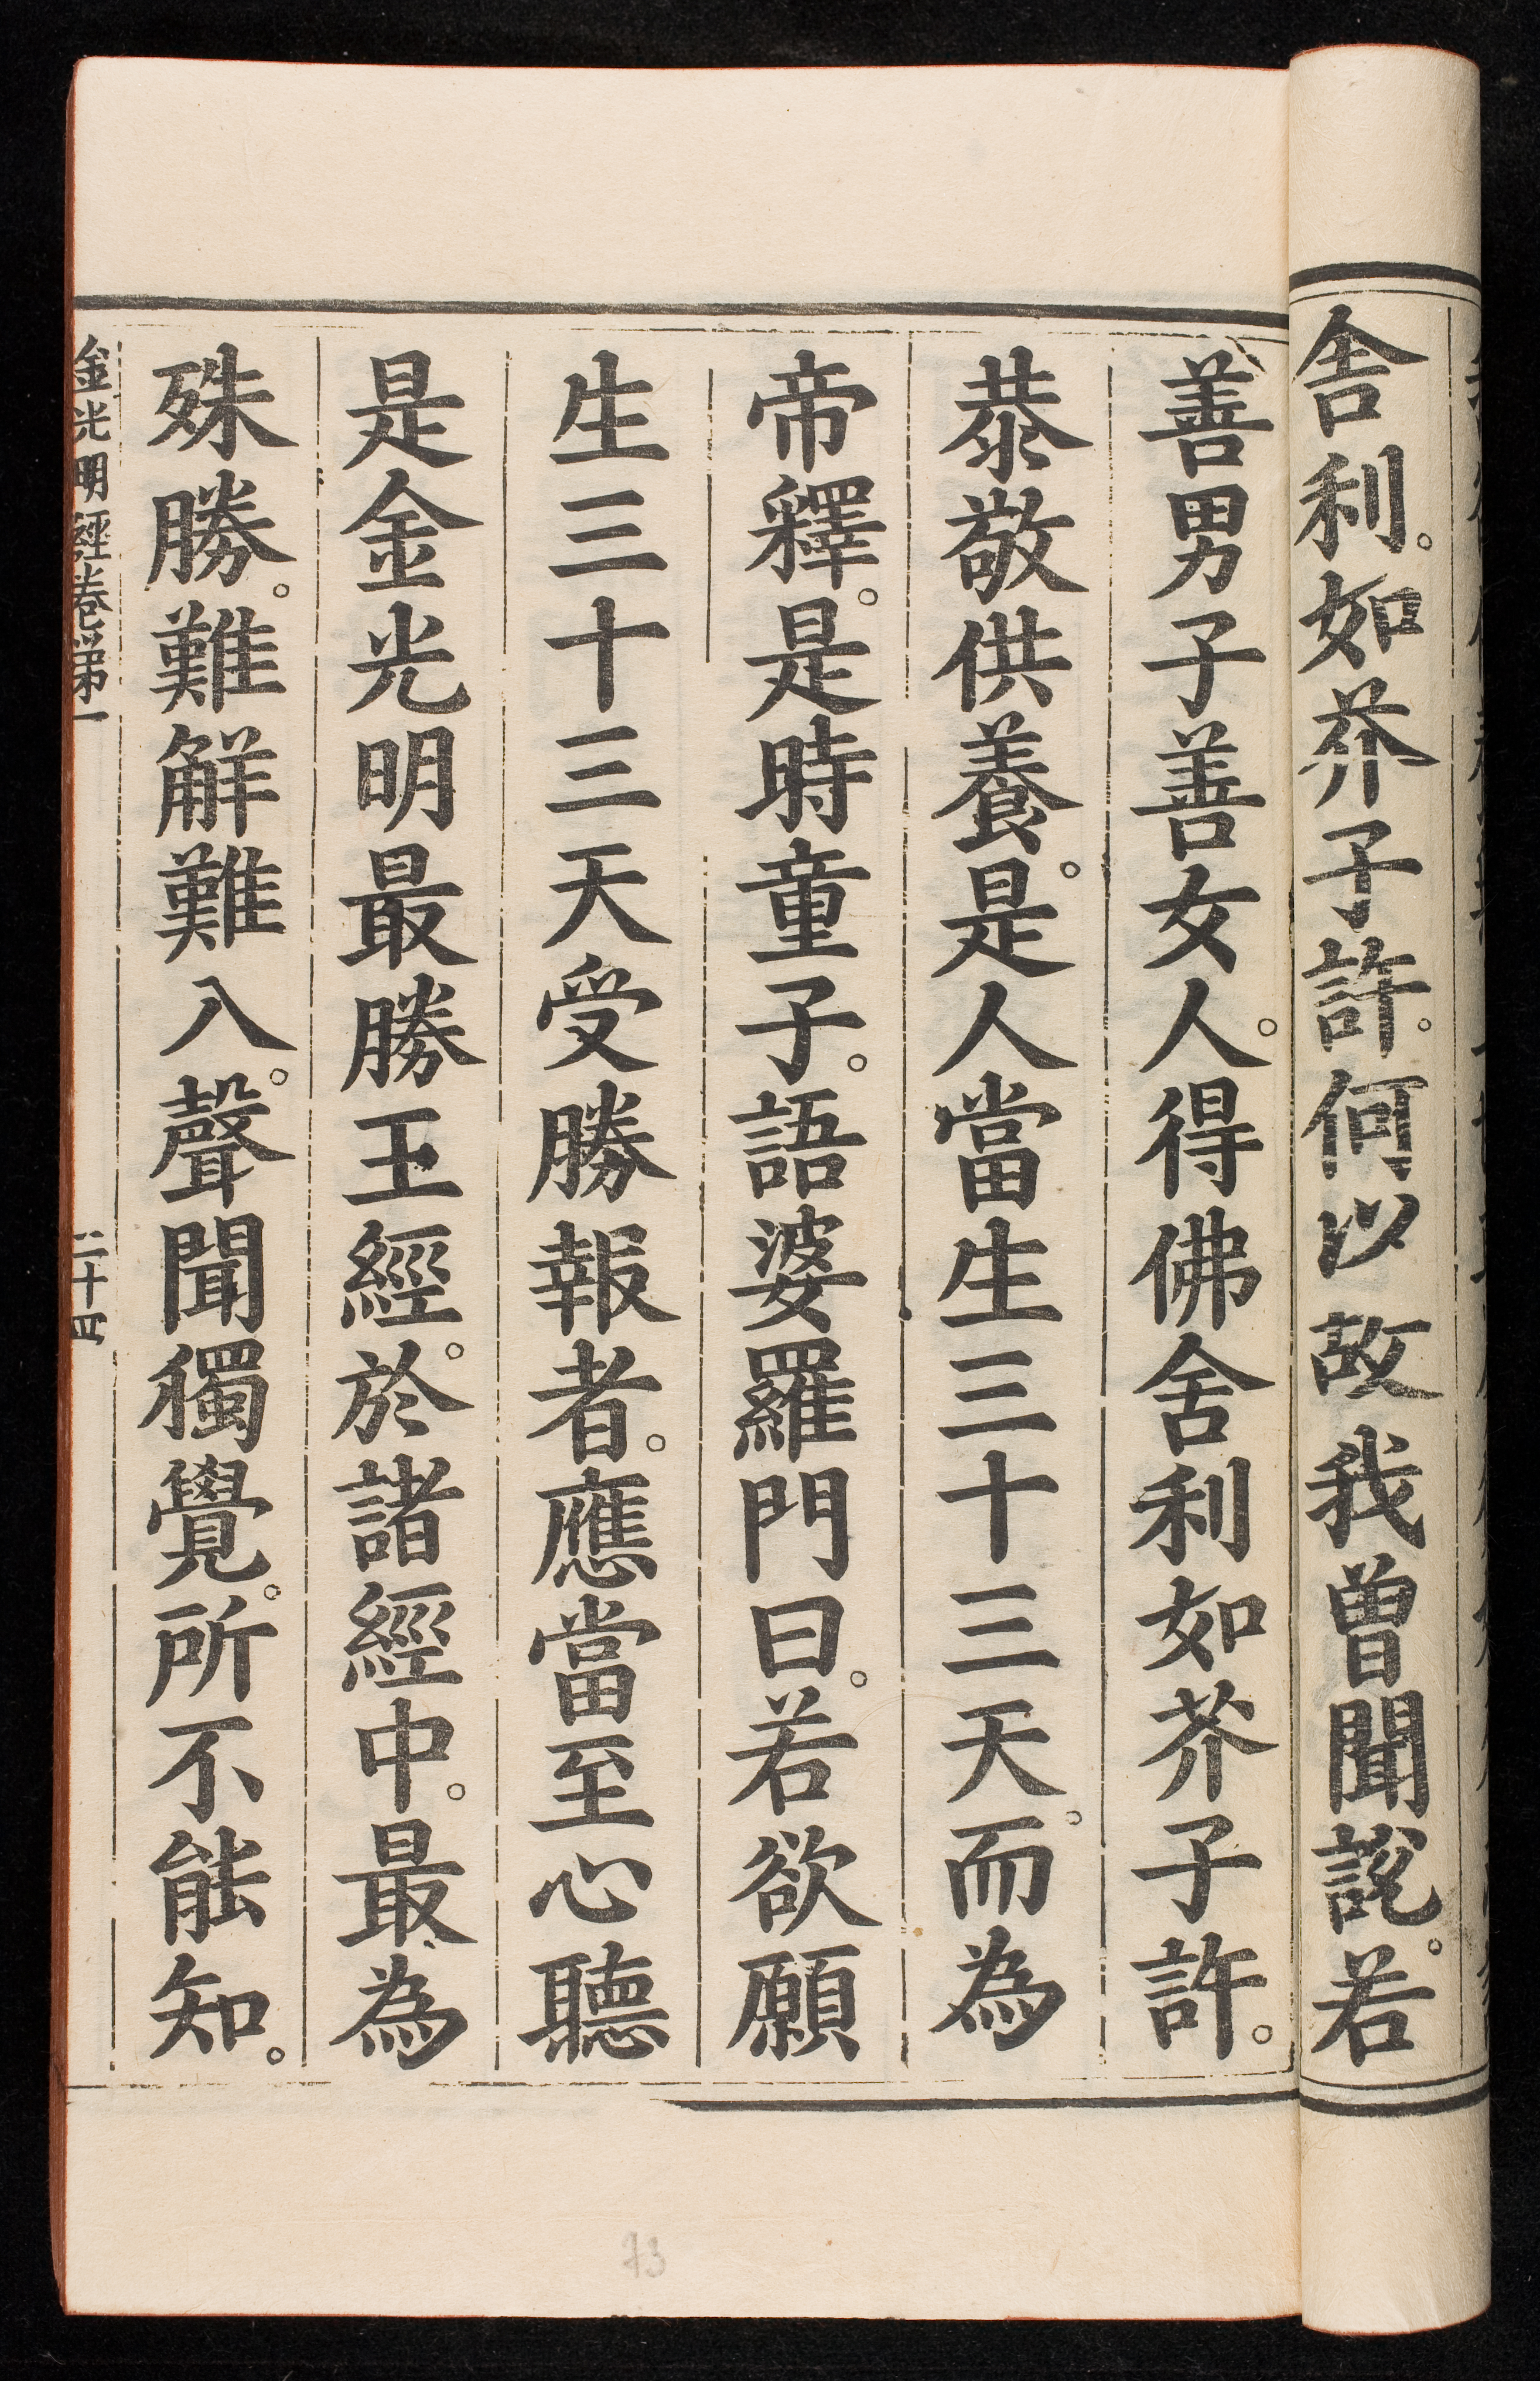 舎利。如芥子許。何以故我曾聞說。若
善男子善女人。得佛舎利如芥子許。
恭敬供養。是人當生三十三天。而為
帝釋。是時童子。語婆羅門曰。若欲願
生三十三天受勝報者。應當至心聽
是金光明最勝王經。於諸經中。最為
殊勝。難解難入。聲聞獨覺。所不能知。
金光明經卷第一
73